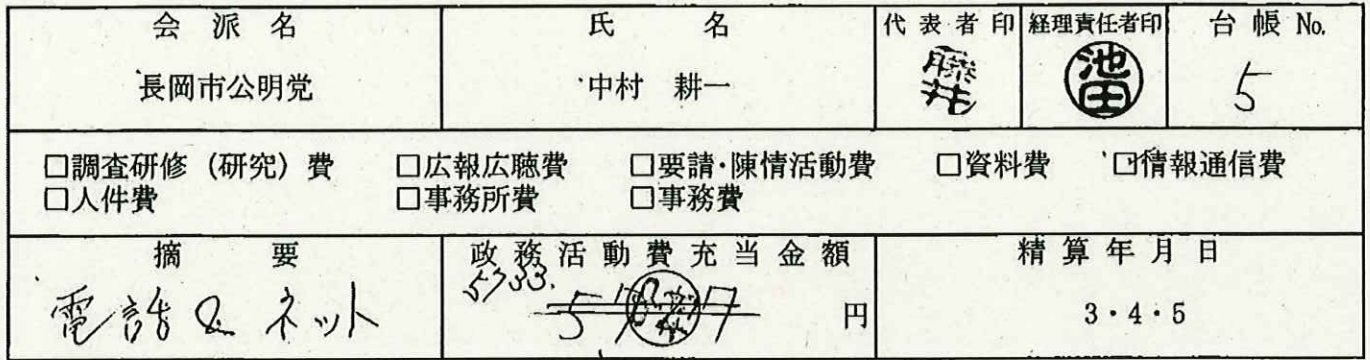 会派名 氏名 代表者印 経理責任者印 台帳No.
長岡市公明党 中村 耕一 藤井 池田 5
□調査研修（研究）費 □広報広聴費 □要請・陳情活動費 □資料費 □情報通信費
□人件費 □事務所費 □事務費
摘要 政務活動費充当金額 精算年月日
5733.
電話&ネット 円 3・4・5